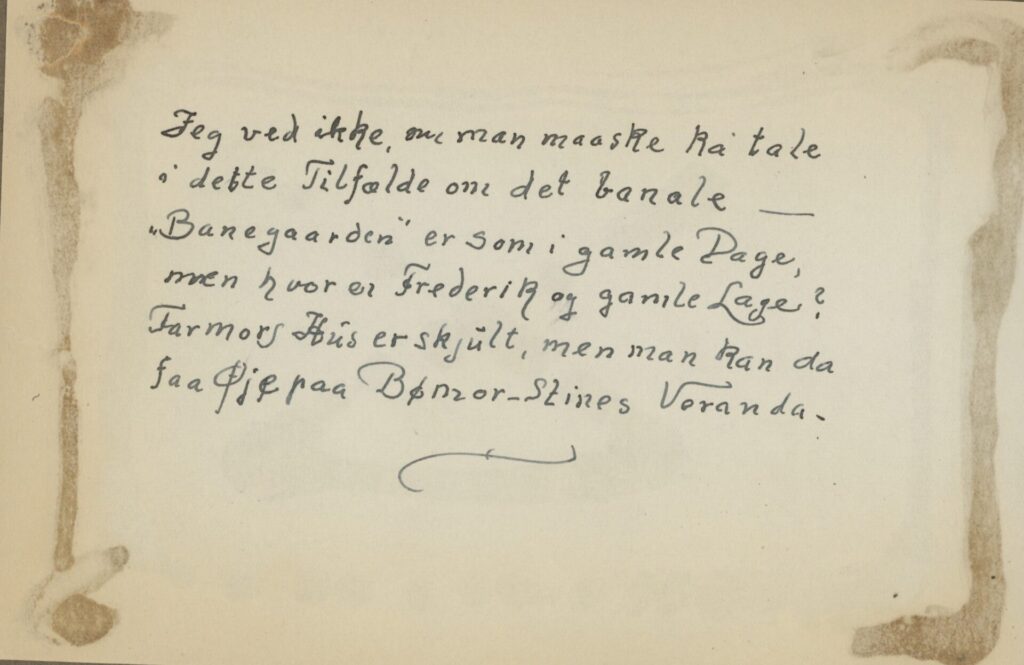 Jeg ved ikke, om man maaske ka' tale
i dette Tilfælde om det banale —
„Banegaarden" er som i gamle Dage,
men hvor er Frederik og gamle Lage?
Farmors Hús er skjúlt, men man kan da
faa Øje paa Bømor-Stines Veranda.